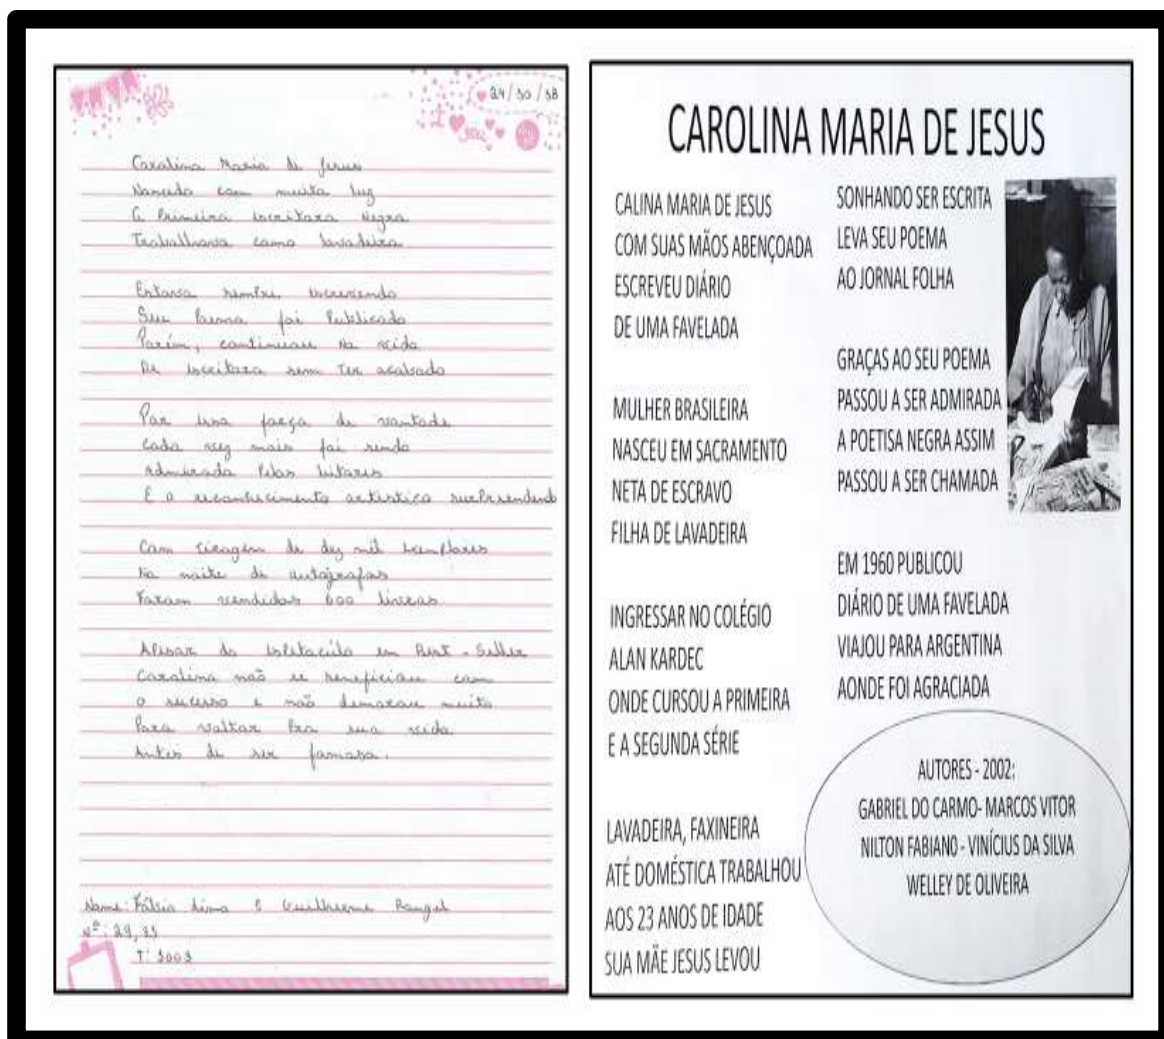 24/10/18
I
you
Carolina Maria de Jesus
Nascida com muita luz
A Primeira escritora Negra
Trabalhava como lavadeira
Estava sempre escrevendo
Seu Poema foi Publicado
Porém, continuou na vida
De escritora sem ter acabado
Por essa força de vontade
Cada vez mais foi sendo
Admirada Pelos leitores
E o reconhecimento artístico surpreendendo
Com tiragem de dez mil exemplares
Na noite de autógrafos
Foram vendidos 600 livros
Apesar do espetáculo em Best-Seller
Carolina não se beneficiou com
o sucesso e não demorou muito
Para voltar Pra sua vida
Antes de ser famosa.
Nome: Lima e Guilherme Rangel
Nº: 29,
T: 1003
CAROLINA MARIA DE JESUS
CALINA MARIA DE JESUS
COM SUAS MÃOS ABENÇOADA
ESCREVEU DIÁRIO
DE UMA FAVELADA
MULHER BRASILEIRA
NASCEU EM SACRAMENTO
NETA DE ESCRAVO
FILHA DE LAVADEIRA
INGRESSAR NO COLÉGIO
ALAN KARDEC
ONDE CURSOU A PRIMEIRA
E A SEGUNDA SÉRIE
LAVADEIRA, FAXINEIRA
ATÉ DOMÉSTICA TRABALHOU
AOS 23 ANOS DE IDADE
SUA MÃE JESUS LEVOU
SONHANDO SER ESCRITA
LEVA SEU POEMA
AO JORNAL FOLHA
GRAÇAS AO SEU POEMA
PASSOU A SER ADMIRADA
A POETISA NEGRA ASSIM
PASSOU A SER CHAMADA
EM 1960 PUBLICOU
DIÁRIO DE UMA FAVELADA
VIAJOU PARA ARGENTINA
AONDE FOI AGRACIADA
AUTORES - 2002:
GABRIEL DO CARMO- MARCOS VITOR
NILTON FABIANO - VINÍCIUS DA SILVA
WELLEY DE OLIVEIRA